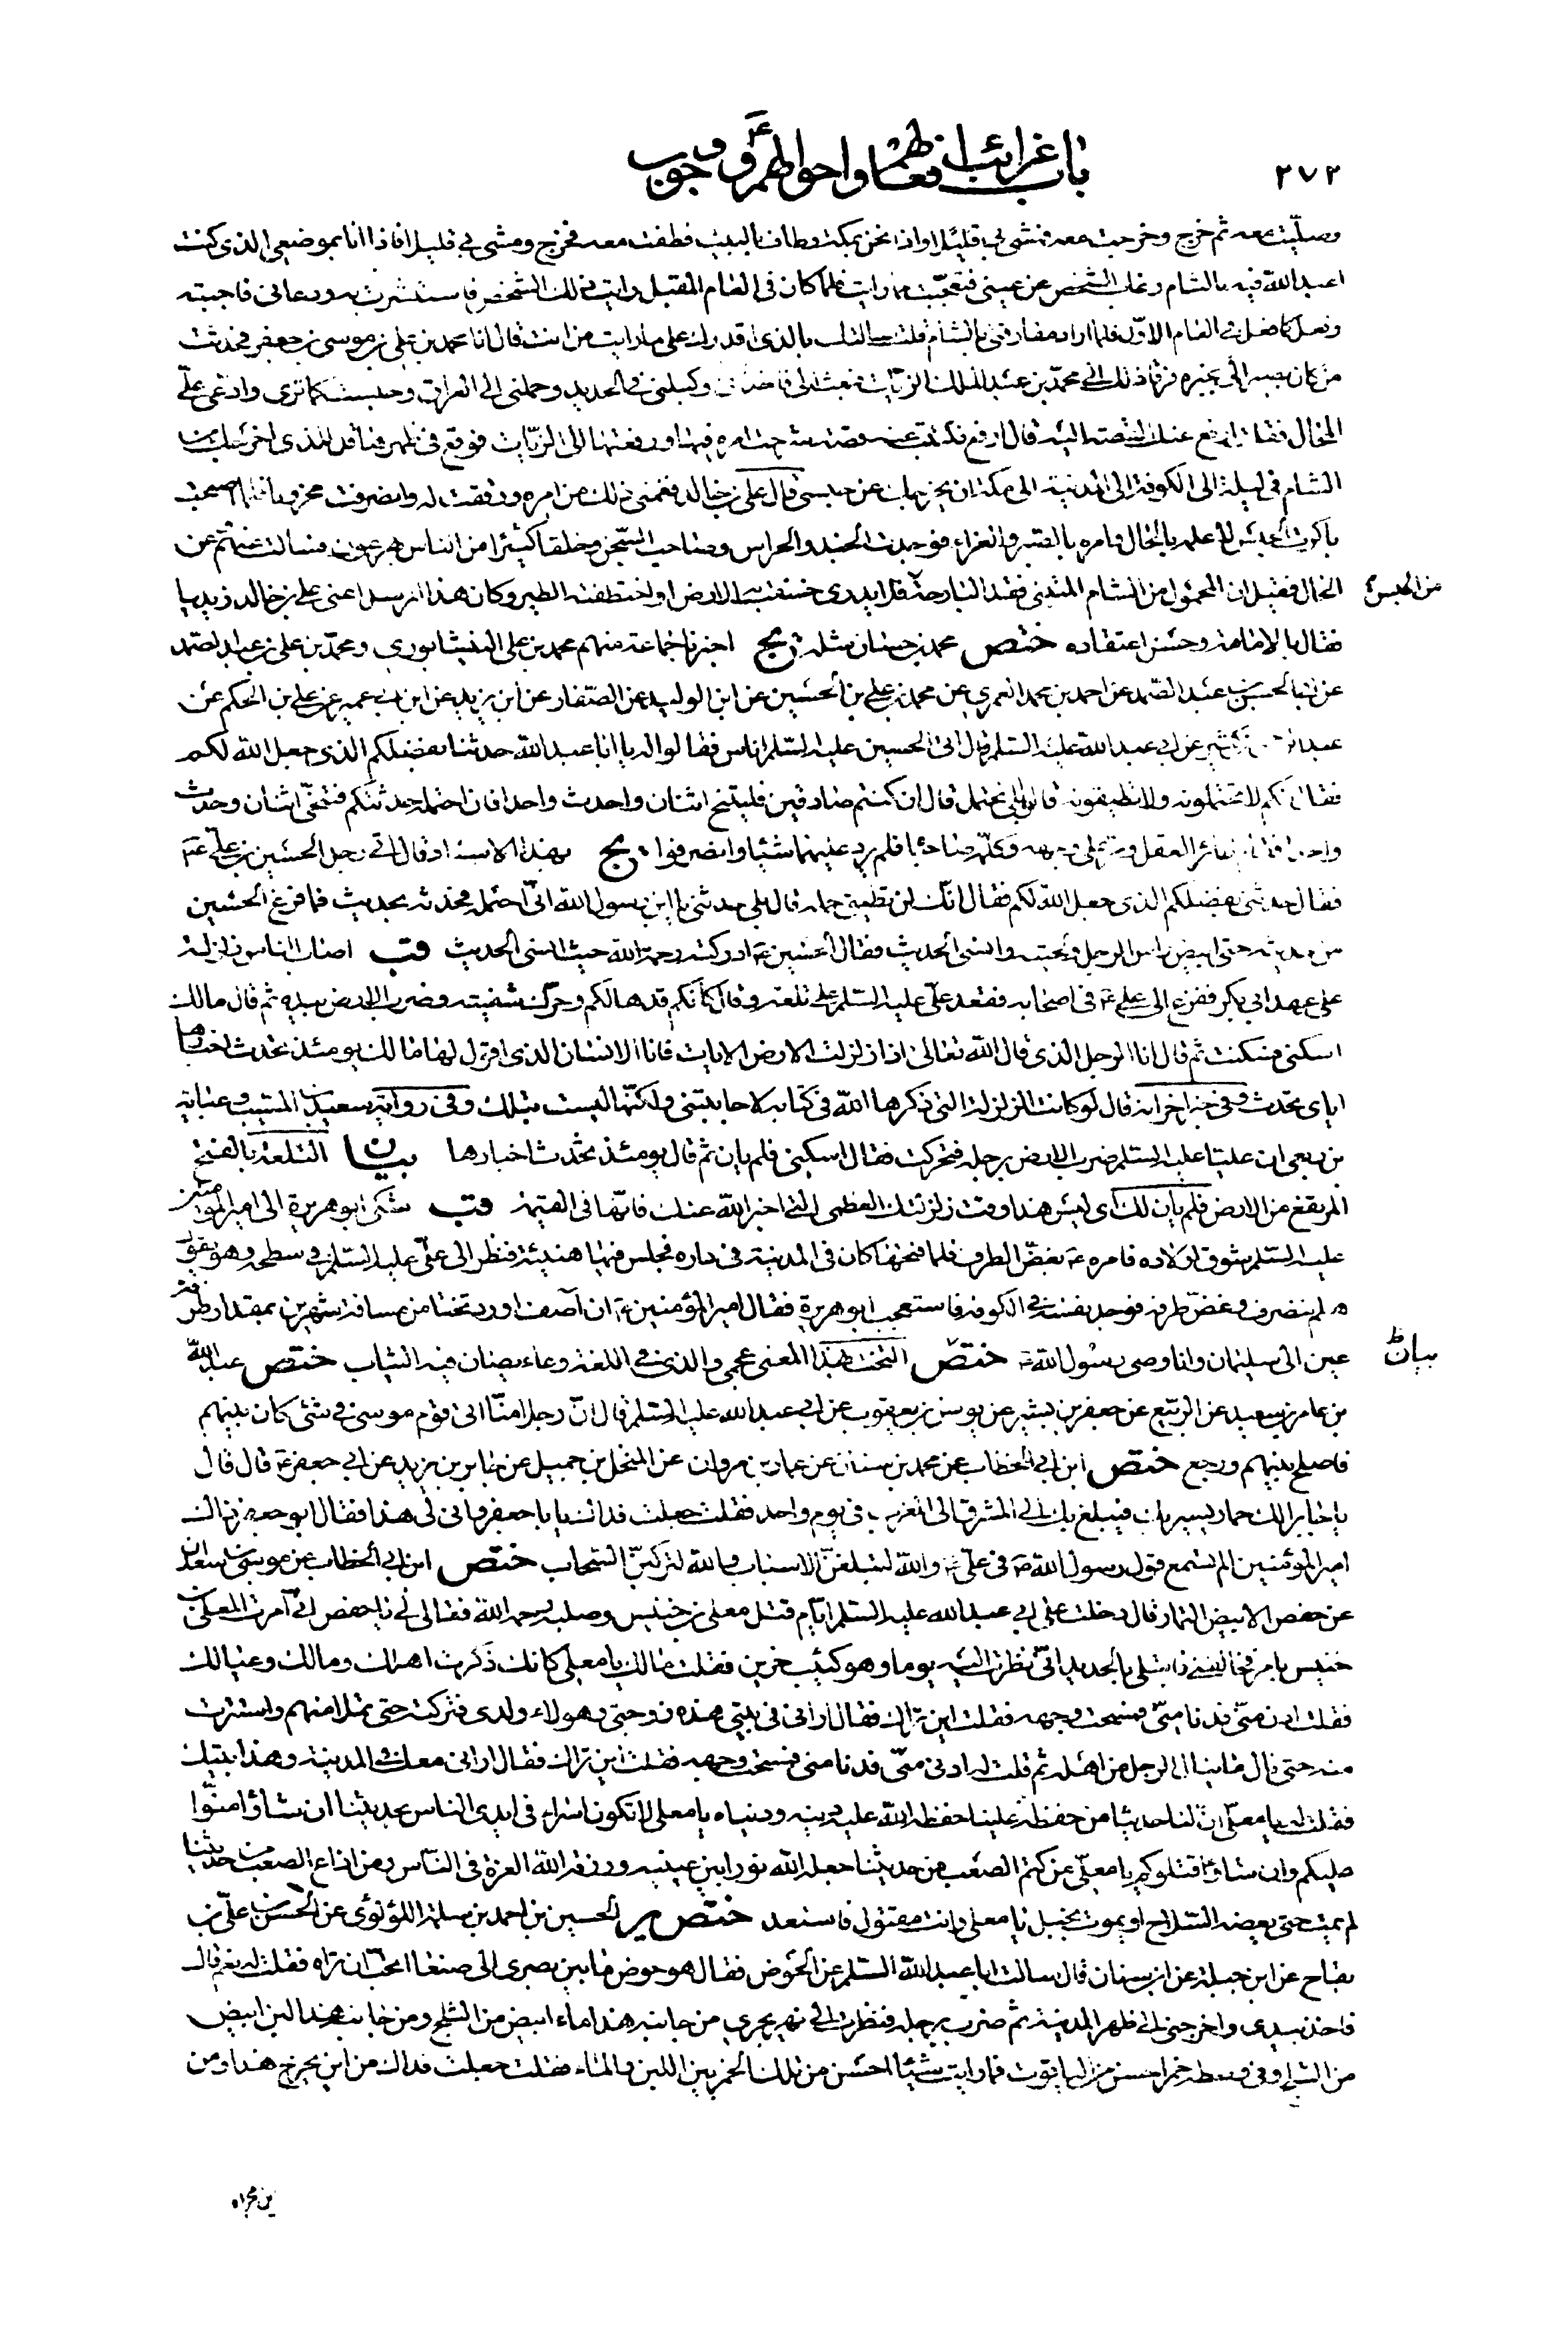 ٢٧٢
باب غرائب افعالهم واحوالهم ع ووجوب
وصلّيت معه ثم خرج وخرجت معه فمشى بي قليلا واذا نحن بمكة وطاف بالبيت فطفت معه فخرج ومشى بي قليلا فاذا انا بموضعي الذي كنت
اعبد الله فيه بالشام وغاب الشخص عن عيني فتعجّبت مما رايت فلما كان في العام المقبل رايت ذلك الشخص فاستبشرت به ودعاني فاجبته
وفعل كما فعل في العام الاوّل فلما اراد مفارقتي بالشام قلت سالتك بالذي اقدرك على ما رايت من انت قال انا محمد بن علي بن موسى بن جعفر فحدثت
من كان يصير الي بخبره فرقا ذلك الى محمد بن عبد الملك الزيّات فبعث الي فاخذني وكبلني في الحديد وحملني الى العراق وحبست كما ترى وادعى عليّ
المحال فقلت ارفع عنك القصة اليه قال ارفع فكتبت عنه قصة شرحت امره فيها ورفعتها الى الزيّات فوقع في ظهرها قل للذي اخرجك من
الشام في ليلة الى الكوفة الى المدينة الى مكة ان يخرجك من حبسي قال علي بن خالد فغمني ذلك من امره ورققت له وانصرفت محزونا فلما اصبحت
باكرت الحبس لاعلمه بالحال وامره بالصبر والعزاء فوجدت الجند والحراس وصاحب السّجن وخلقا كثيرا من الناس يهرعون فسالت عنهم عن
الحال فقيل ان المحمول من الشام المتنبي فقد البارحة فلا يدرى خسفت به الارض او اختطفته الطير وكان هذا المرسل اعني علي بن خالد زيديا
من الحبس
فقال بالامامة وحسن اعتقاده ختص محمد بن حسان مثله يج اخبرنا جماعة منهم محمد بن علي النيشابوري ومحمد بن علي بن عبد الصمد
عن ابي الحسن بن عبد الصّمد عن احمد بن محمد العمري عن محمد بن علي بن الحسين عن ابن الوليد عن الصّفار عن ابن يزيد عن ابن ابي عمير عن علي بن الحكم عن
عبد الرحمن بن كثير عن ابي عبد الله عليه السّلم قال اتى الحسين عليه السّلم اناس فقالوا له يا ابا عبد الله حدثنا بفضلكم الذي جعل الله لكم
فقال انكم لا تحتملونه ولا تطيقونه قالوا بلى نحتمل قال ان كنتم صادقين فليتنح اثنان واحدث واحدا فان احتمله حدثتكم فتنحّى اثنان وحدث
واحدا فقام طائر العقل ومر على وجهه وكلّمه صاحباه فلم يرد عليهما شيئا وانصرفوا يج بهذا الاسناد قال اتى رجل الحسين بن عليّ ع
فقال حدثني بفضلكم الذي جعل الله لكم فقال انّك لن تطيق حمله قال بلى حدثني يا ابن رسول الله اني احتمله فحدثه بحديث فما فرغ الحسين
من حديثه حتى ابيض راس الرجل ولحيته وانسي الحديث فقال الحسين ع ادركته رحمة الله حيث انسي الحديث قب اصاب الناس زلزلة
على عهد ابي بكر ففزع الى علي ع في اصحابه فقعد عليّ عليه السّلم على تلعة وقال كانكم قد هالكم وحرّك شفتيه وضرب الارض بيده ثم قال مالك
اسكني فسكنت ثم قال انا الرجل الذي قال الله تعالى اذا زلزلت الارض الايات فانا الانسان الذي اقول لها مالك يومئذ تحدث اخبارها
اياي تحدث وفي خبر اخر انه قال لو كانت الزلزلة التي ذكرها الله في كتابه لاجابتني ولكنّها ليست بتلك وفي رواية سعيد بن المسيب وعباية
بن ربعي ان عليا عليه السّلم ضرب الارض برجله فتحركت فقال اسكني فلم يان ثم قال يومئذ تحدث اخبارها بيان التلعة بالفتح
المرتفع من الارض فلم يان لك اي ليس هذا وقت زلزلتك العظمى التي اخبر الله عنك فانّها في القيمة قب شكى ابو هريرة الى امير المؤمنين
عليه السّلم شوق اولاده فامره ع بغضّ الطرف فلما فتحها كان في المدينة في داره فجلس فيها هنيئة فنظر الى عليّ عليه السّلم في سطحه وهو يقول
هلم ننصرف وغضّ طرفه فوجد نفسه في الكوفة فاستعجب ابو هريرة فقال امير المؤمنين ع ان آصف اورد تختا من مسافة شهرين بمقدار طرفة
عين الى سليمان وانا وصي رسول الله ص ختص التخت بهذا المعنى عجمي والذي في اللغة وعاء يصان فيه الثياب ختص عبد الله
بيان
بن عامر بن سعيد عن الربيع عن جعفر بن بشير عن يونس بن يعقوب عن ابي عبد الله عليه السّلم قال انّ رجلا منّا اتى قوم موسى في شئ كان بينهم
فاصلح بينهم ورجع ختص ابن ابي الخطاب عن محمد بن سنان عن عمار بن مروان عن المنخل بن جميل عن جابر بن يزيد عن ابي جعفر ع قال قال
يا جابر الك حمار يسير بك فيبلغ بك الى المشرق الى المغرب في يوم واحد فقلت جعلت فداك يا با جعفر واني لي هذا فقال ابو جعفر ذاك
امير المؤمنين الم تسمع قول رسول الله ص في عليّ ع والله لتبلغنّ الاسباب والله لتركبنّ السّحاب ختص ابن ابي الخطاب عن موسى بن سعدان
عن حفص الابيض التمار قال دخلت على ابي عبد الله عليه السّلم ايّام قتل معلى بن خنيس وصلبه رحمه الله فقال لي يا حفص اني آمرت المعلى بن
خنيس بامر فخالفني فابتلي بالحديد اني نظرت اليه يوما وهو كئيب حزين فقلت مالك يا معلى كانك ذكرت اهلك ومالك وعيالك
فقلت ادن منّي فدنا منّي فمسحت وجهه فقلت اين تراك فقال اراني في بيتي هذه زوجتي وهولاء ولدي فتركته حتى تملا منهم واستترت
منه حتى نال ما ينال الرجل من اهله ثم قلت له ادن منّي فدنا مني فمسحت وجهه فقلت اين تراك فقال اراني معك في المدينة وهذا بيتك
فقلت له يا معلّى ان لنا حديثا من حفظه علينا حفظه الله عليه دينه ودنياه يا معلى لا تكونوا اسراء في ايدي الناس بحديثنا ان شاؤا منّوا
عليكم وان شاؤا قتلوكم يا معلّى من كتم الصعب من حديثنا جعله الله نورا بين عينيه ورزقه الله العزة في الناس ومن اذاع الصعب من حديثنا
لم يمت حتى يعضه السّلاح او يموت بخبل يا معلى وانت مقتول فاستعد ختص ير الحسين بن احمد بن سلمة اللؤلؤي عن الحسن بن عليّ بن
بقاح عن ابن جبلة عن ابن سنان قال سالت ابا عبد الله السّلم عن الحوض فقال هو حوض ما بين بصرى الى صنعا اتحب ان تراه فقلت له نعم قال
فاخذ بيدي واخرجني الى ظهر المدينة ثم ضرب برجله فنظرت الى نهر يجري من جانبه هذا ماء ابيض من الثلج ومن جانبه هذا لبن ابيض
من الثلج وفي وسطه خمر احسن من الياقوت فما رايت شيئا احسن من تلك الخمر بين اللبن والماء فقلت جعلت فداك من اين يخرج هذا ومن
ين مجراه